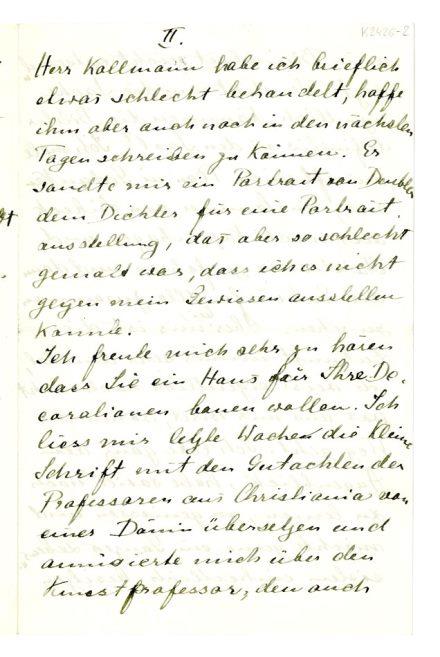 II.
K2426-2
Herr Kollmann habe ich brieflich
etwas schlecht behandelt, hoffe
ihm aber auch noch in den nächsten
Tagen schreiben zu können. Er
sandte mir ein Portrait von Däubler
dem Dichter für eine Portrait.
ausstellung, das aber so schlecht
gemalt war, dass ich es nicht
gegen mein Gewissen ausstellen
konnte.
Ich freute mich sehr zu hören
dass Sie ein Haus für Ihre De,
corationen bauen wollen. Ich
liess mir letzte Woche die kleine
Schrift mit den Gutachten der
Professoren aus Christiania von
einer Dänin übersetzen und
amüsierte mich über den
Kunstprofessor, den auch